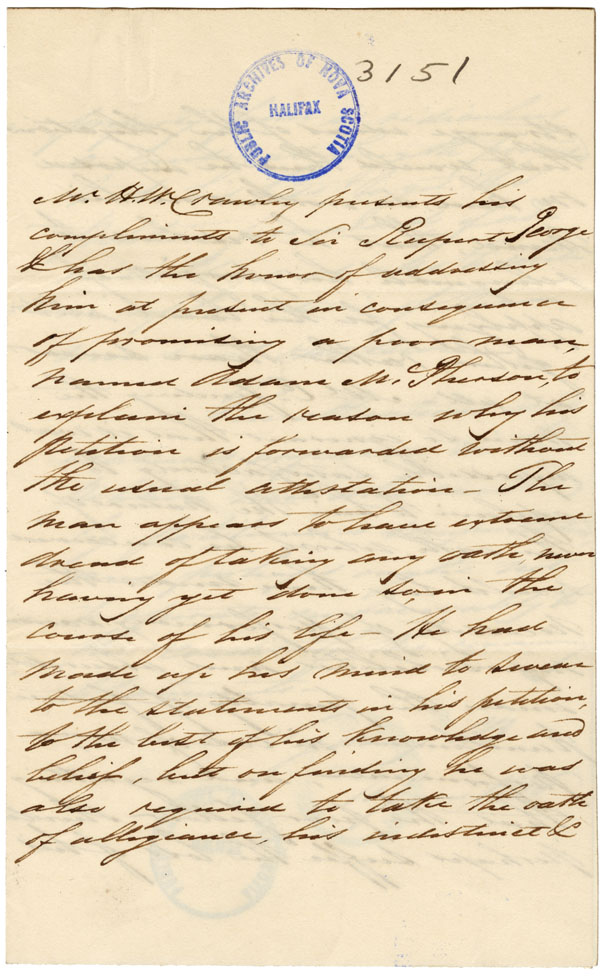 3151
PUBLIC ARCHIVES OF NOVA SCOTIA
HALIFAX
Mr. H. W. Crawley presents his
compliments to Sir Rupert George
& has the honor of addressing
him at present in consequence
of promising a poor man,
named Adam McPherson, to
explain the reason why his
Petition is forwarded without
the usual attestation - The
man appears to have extreme
dread of taking any oath, never
having yet done so, in the
course of his life - He had
made up his mind to swear
to the statements in his petition,
to the best of his knowledge and
belief, but on finding he was
also required to take the oath
of allegiance, his indistinct &